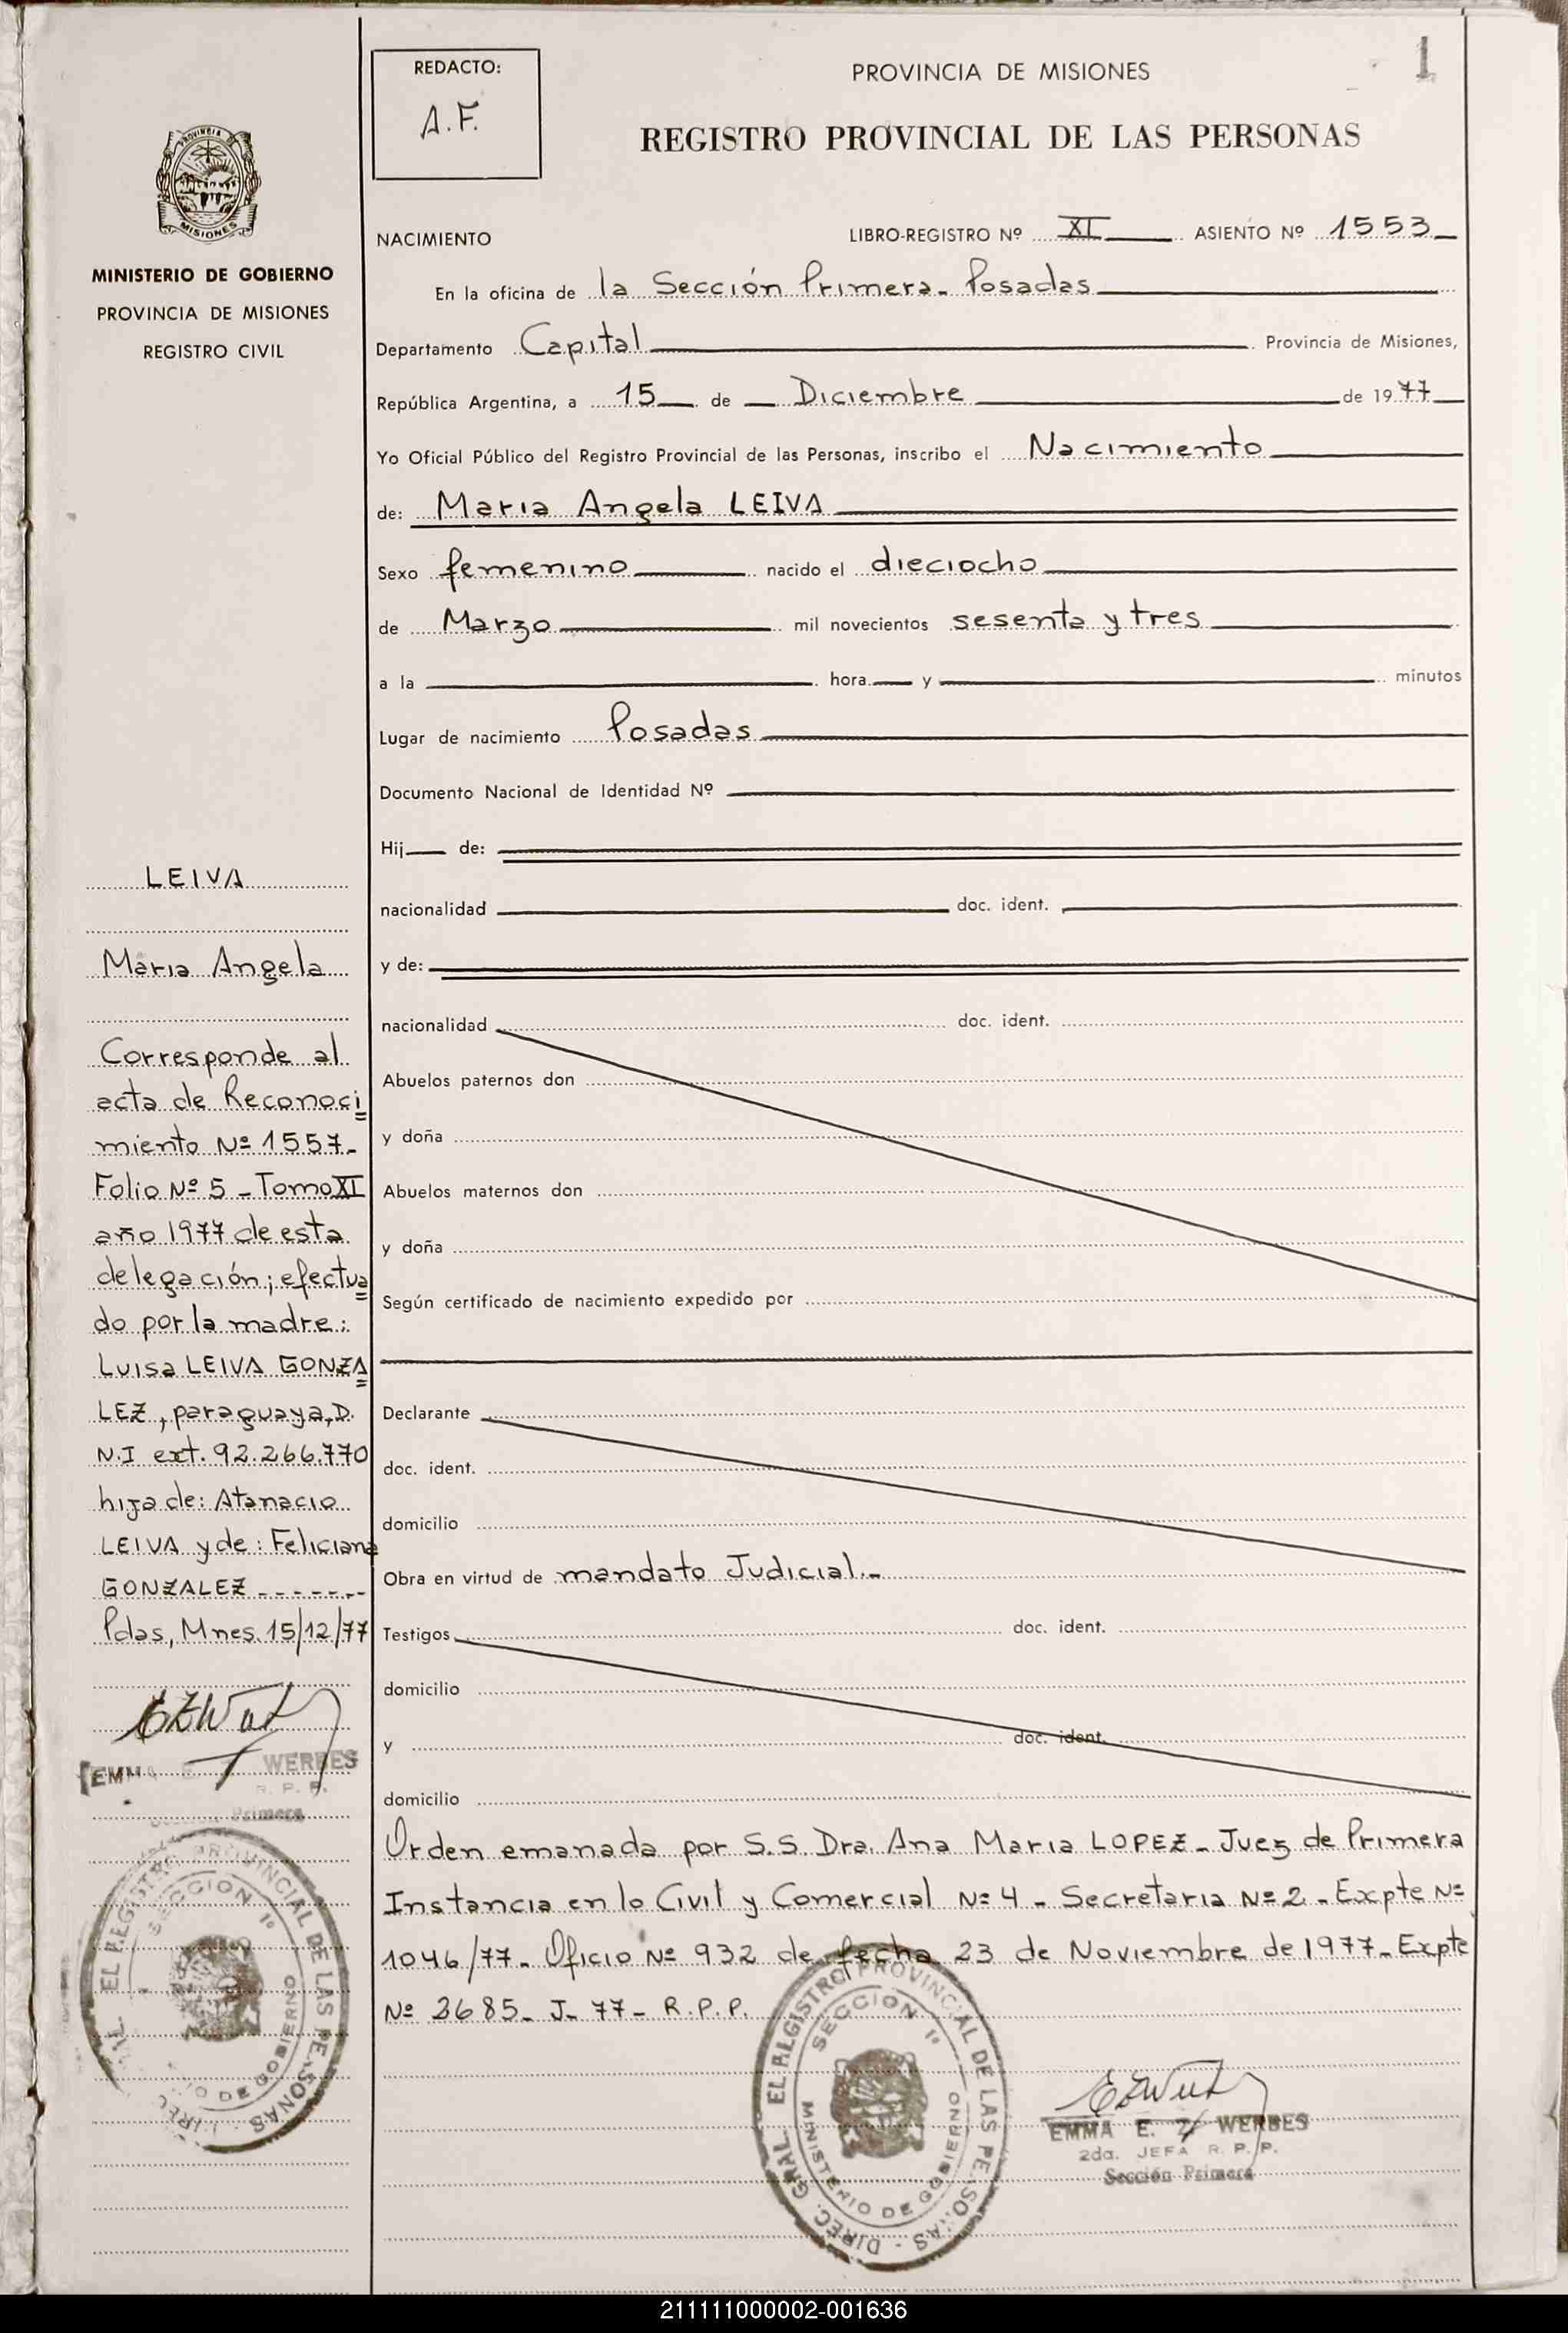 REDACTO:
A.F.
PROVINCIA DE MISIONES
1
REGISTRO PROVINCIAL DE LAS PERSONAS
PROVINCIA DE
MISIONES
MINISTERIO DE GOBIERNO
PROVINCIA DE MISIONES
REGISTRO CIVIL
NACIMIENTO LIBRO-REGISTRO Nº XI ASIENTO Nº 1553
En la oficina de la Sección Primera - Posadas
Departamento Capital Provincia de Misiones,
República Argentina, a 15 de Diciembre de 1977
Yo Oficial Público del Registro Provincial de las Personas, inscribo el Nacimiento
de: Maria Angela LEIVA
Sexo femenino nacido el dieciocho
de Marzo mil novecientos sesenta y tres
a la hora y minutos
Lugar de nacimiento Posadas
Documento Nacional de Identidad Nº
Hij de:
nacionalidad doc. ident.
y de:
nacionalidad doc. ident.
Abuelos paternos don
y doña
Abuelos maternos don
y doña
Según certificado de nacimiento expedido por
Declarante
doc. ident.
domicilio
Obra en virtud de mandato Judicial.-
Testigos doc. ident.
domicilio
y doc. ident.
domicilio
Orden emanada por S.S. Dra. Ana Maria LOPEZ - Juez de Primera
Instancia en lo Civil y Comercial Nº 4 - Secretaria Nº 2 - Expte Nº
1046/77 - Oficio Nº 932 de fecha 23 de Noviembre de 1977 - Expte
Nº 3685 - J - 77 - R.P.P.
DIREC. GRAL. EL REGISTRO PROVINCIAL DE LAS PERSONAS
SECCION 1º
MINISTERIO DE GOBIERNO
EMMA E. Z WERBES
2da. JEFA R. P. P.
Sección Primera
LEIVA
Maria Angela
Corresponde al
acta de Reconoci
miento Nº 1557-
Folio Nº 5 - Tomo XI
año 1977 de esta
delegación; efectua
do por la madre:
Luisa LEIVA GONZA
LEZ, paraguaya, D.
N.I ext. 92.266.770
hija de: Atanacio
LEIVA y de: Feliciana
GONZALEZ -------
Pdas, Mnes. 15/12/77
EMMA E WERBES
R. P. P.
Primera
EL REGISTRO PROVINCIAL DE LAS PERSONAS
SECCION 1º
DE GOBIERNO
211111000002-001636